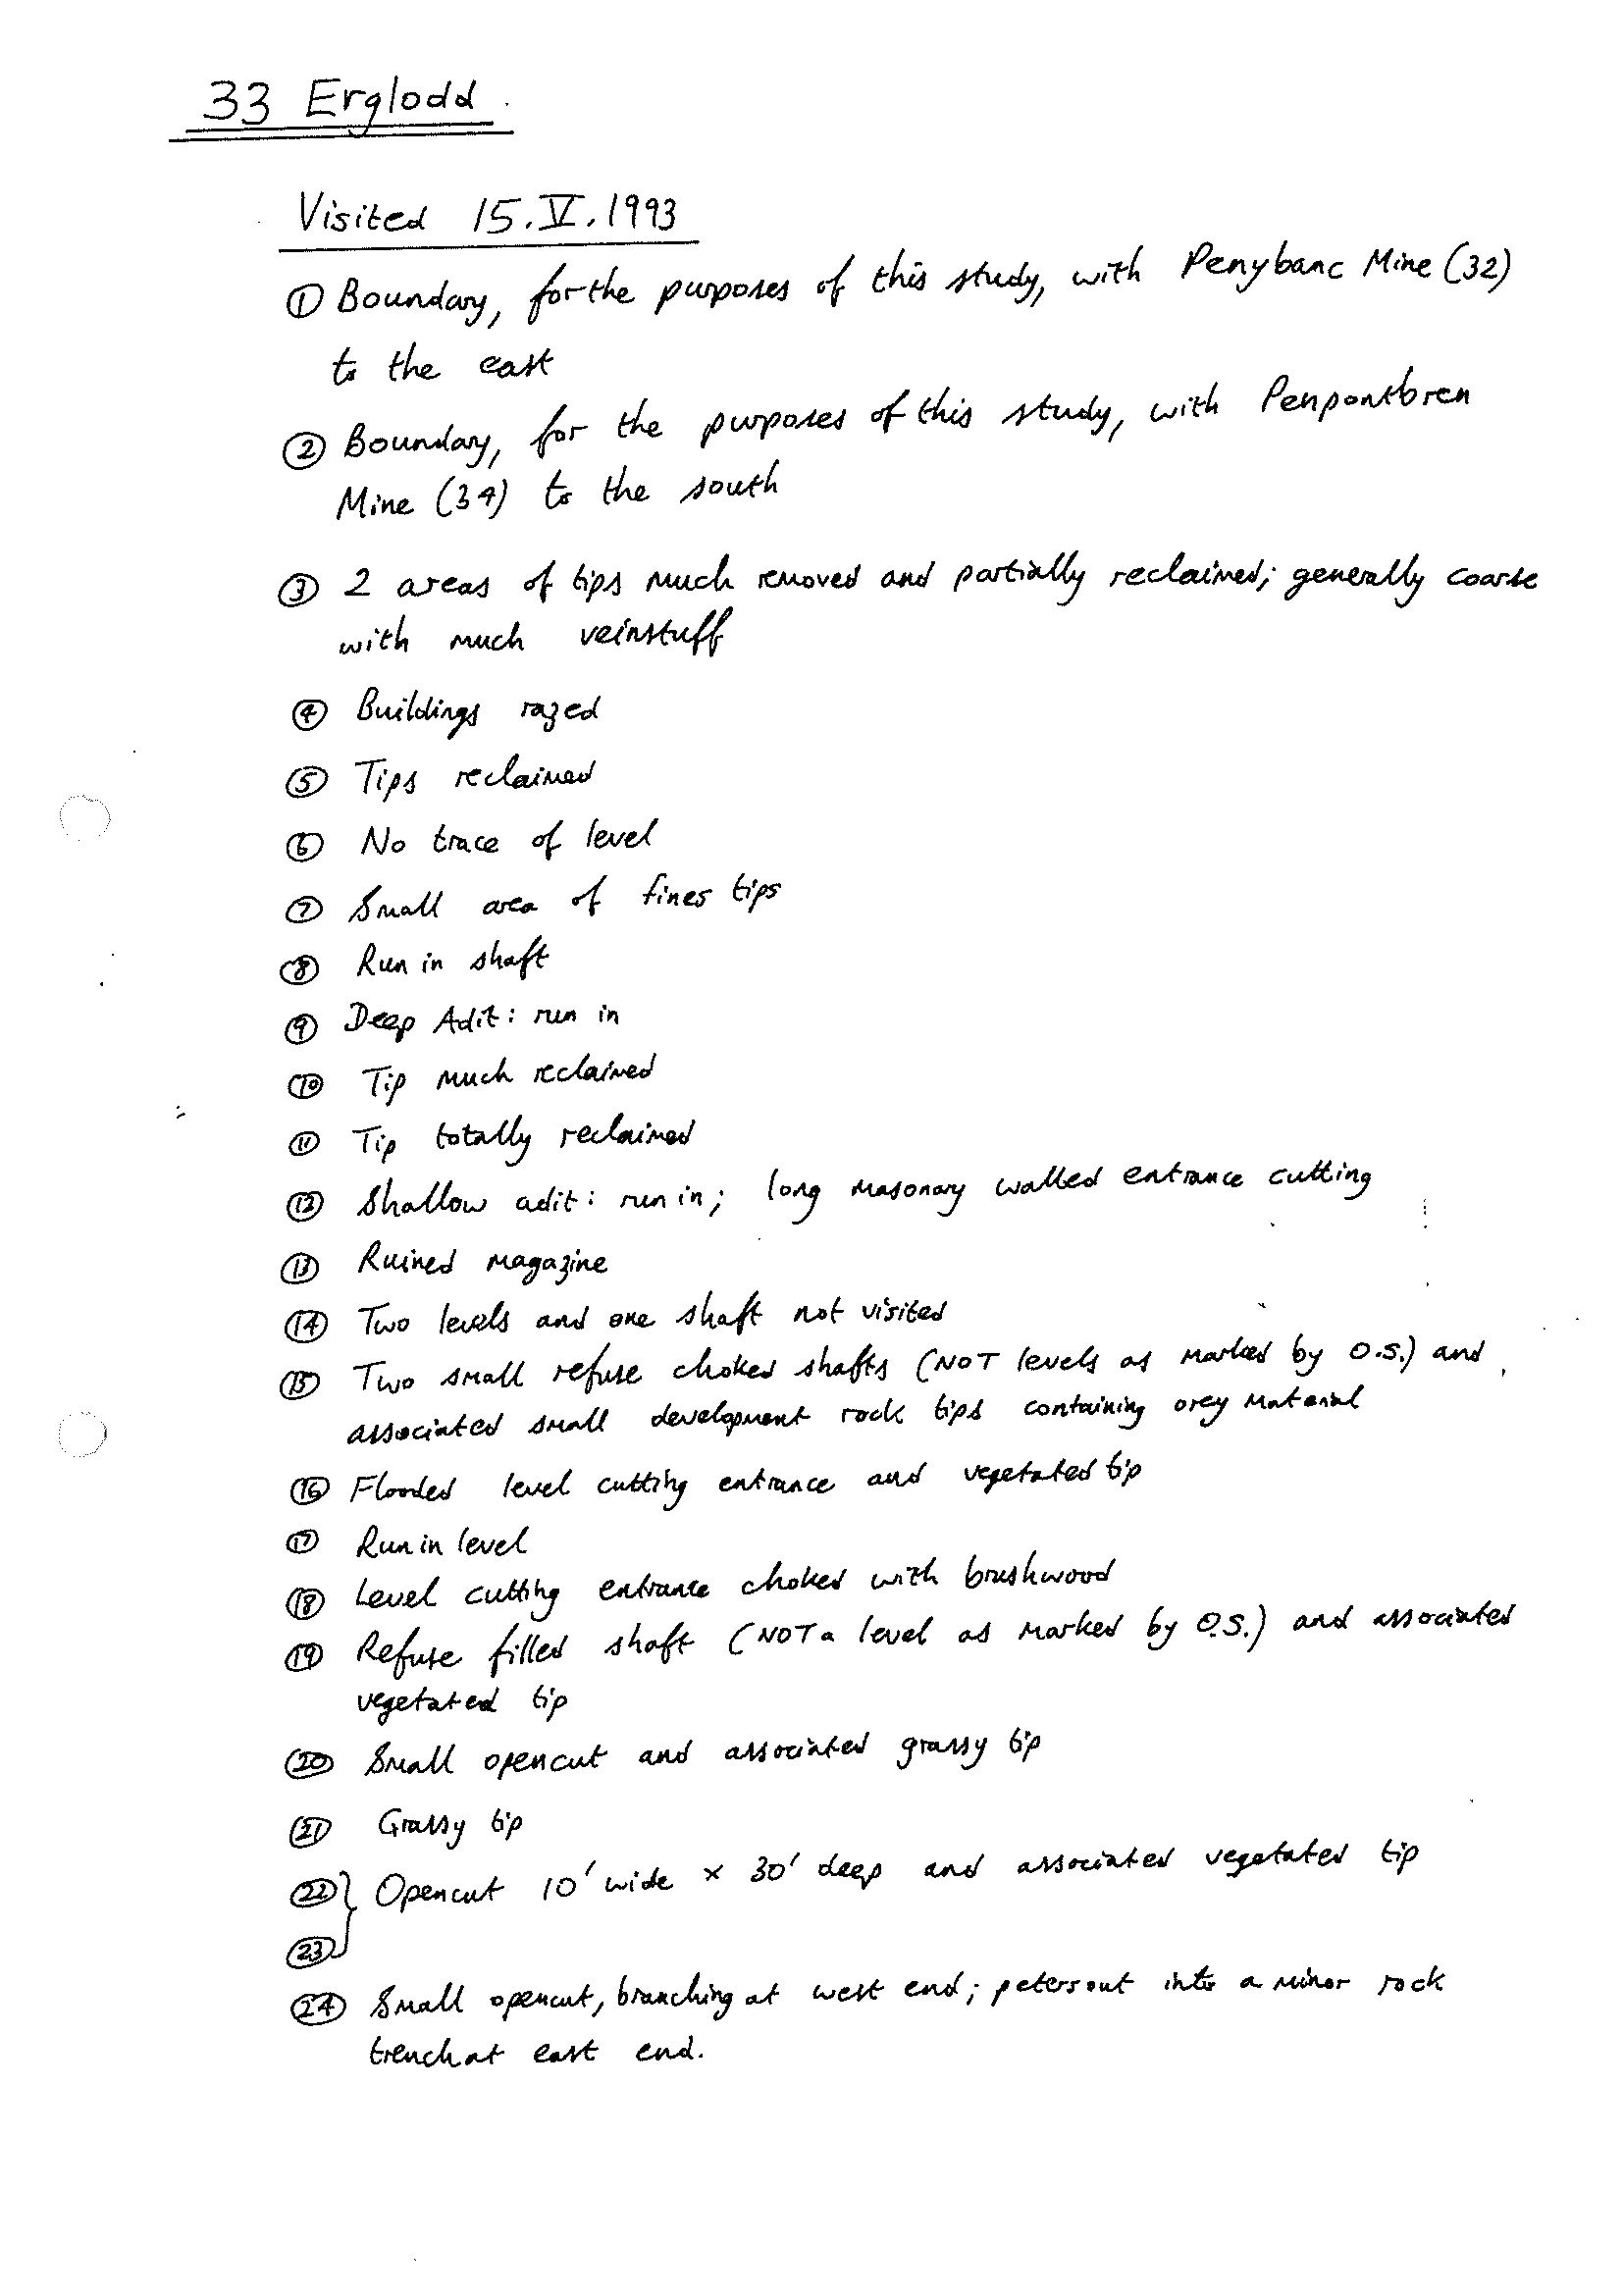 33 Erglodd
Visited 15.V.1993
① Boundary, for the purposes of this study, with Penybanc Mine (32)
to the east
② Boundary, for the purposes of this study, with Penpontbren
Mine (34) to the south
③ 2 areas of tips much removed and partially reclaimed; generally coarse
with much veinstuff
④ Buildings razed
⑤ Tips reclaimed
⑥ No trace of level
⑦ Small area of fines tips
⑧ Run in shaft
⑨ Deep Adit: run in
⑩ Tip much reclaimed
⑪ Tip totally reclaimed
⑫ Shallow adit: run in; long masonary walled entrance cutting
⑬ Ruined magazine
⑭ Two levels and one shaft not visited
⑮ Two small refuse choked shafts (NOT levels as marked by O.S.) and
associated small development rock tips containing orey material
⑯ Flooded level cutting entrance and vegetated tip
⑰ Run in level
⑱ Level cutting entrance choked with brushwood
⑲ Refuse filled shaft (NOT a level as marked by O.S.) and associated
vegetated tip
⑳ Small opencut and associated grassy tip
㉑ Grassy tip
㉒ } Opencut 10' wide × 30' deep and associated vegetated tip
㉓
㉔ Small opencut, branching at west end; peters out into a minor rock
trench at east end.